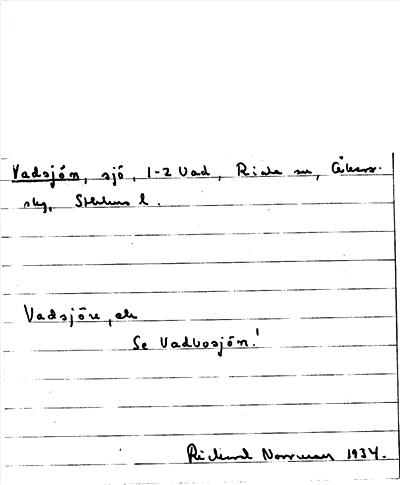 Vadsjön, sjö, 1-2 Vad, Riala sn, Åkers
skg, Sthlms l.
Vadsjön, ek
Se Vadbosjön!
Rickard Norrman 1934.